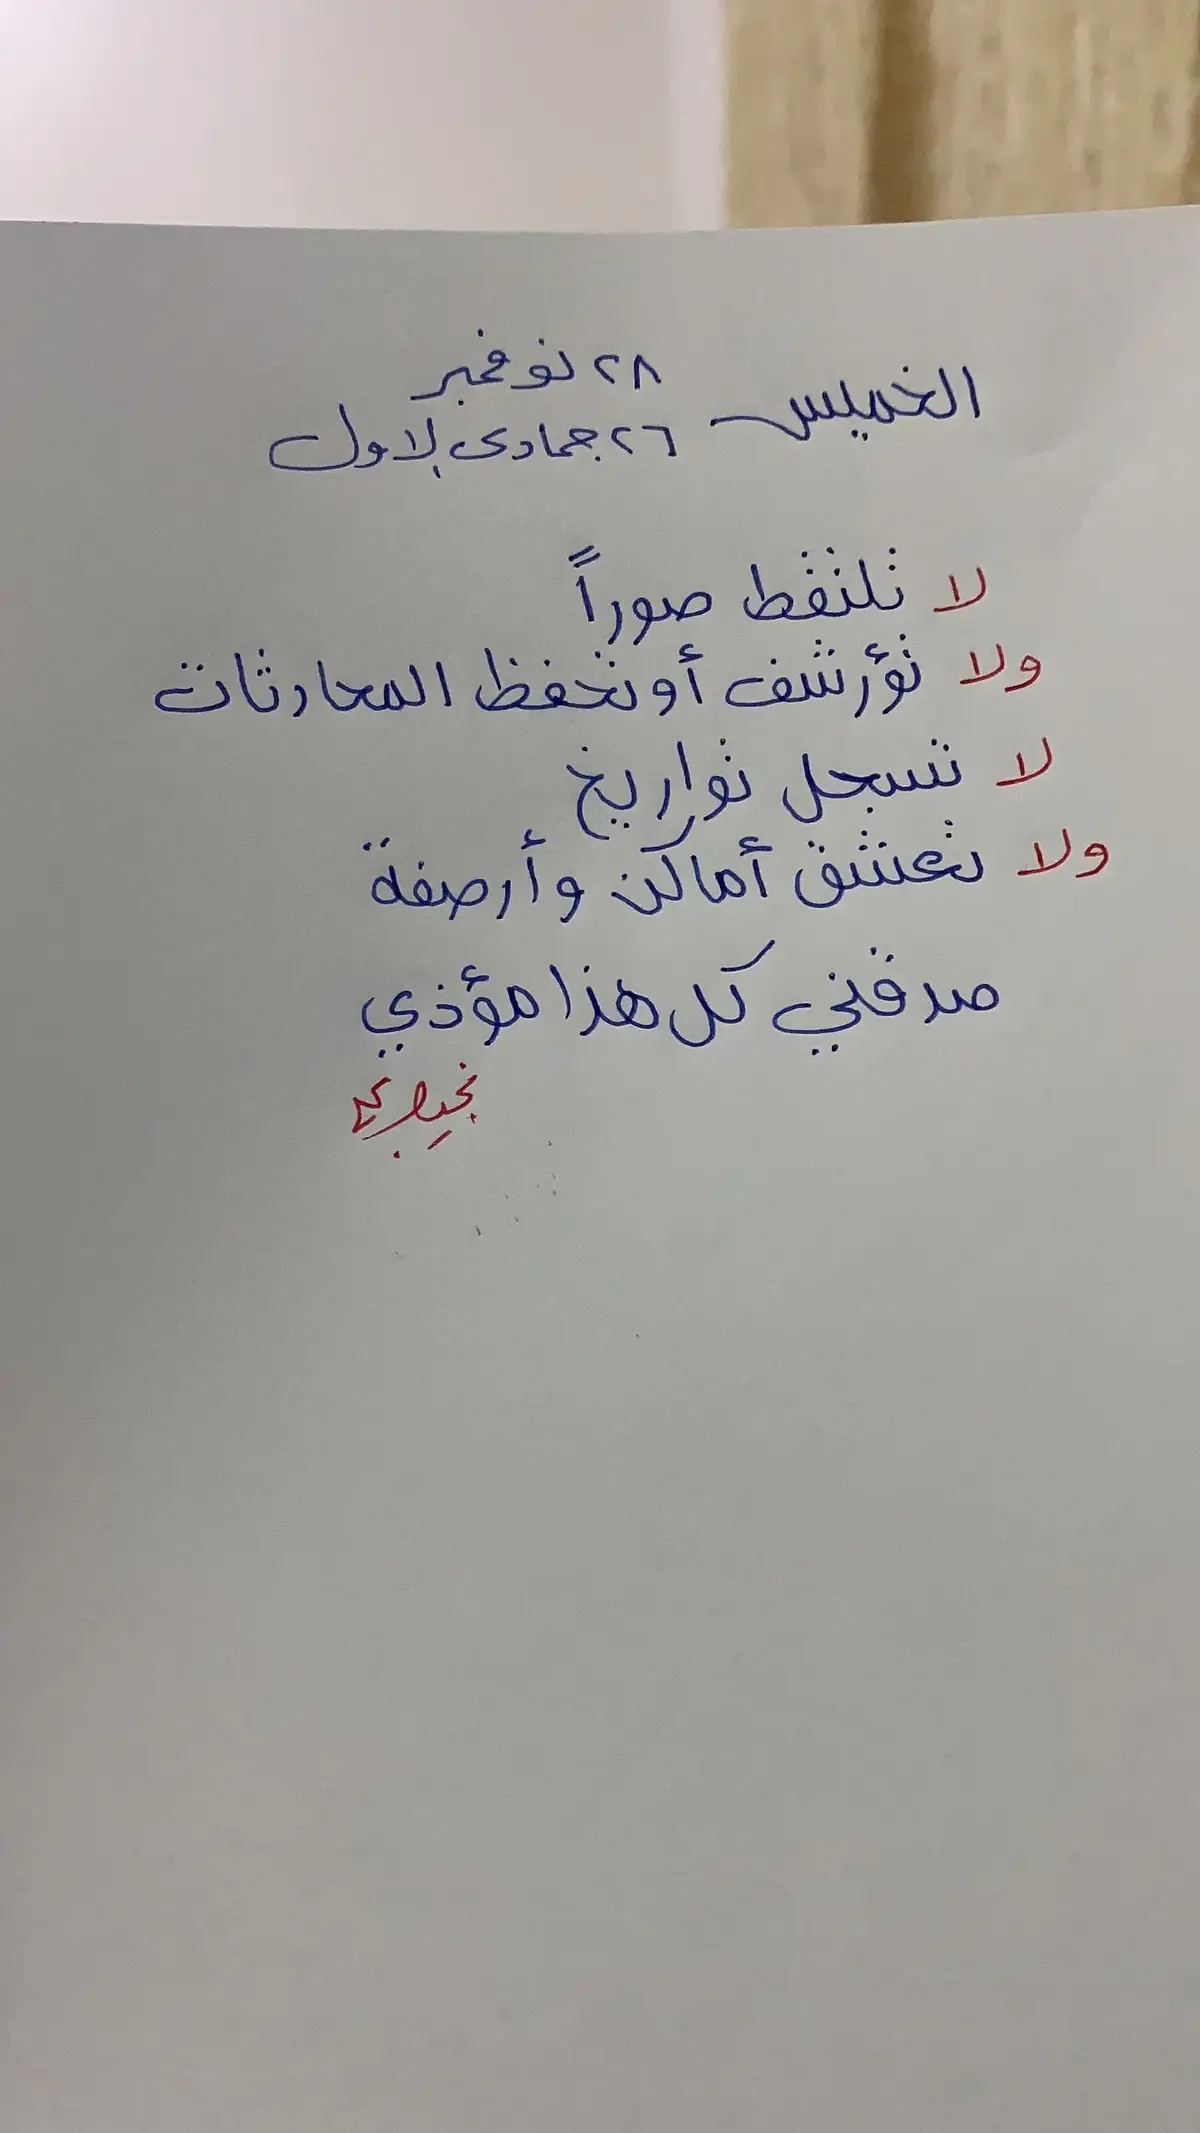 الخميس
٢٨ نوفمبر
٢٦ جمادى الاول
لا تلتقط صوراً
ولا تؤرشف أو تحفظ المحادثات
لا تسجل تواريخ
ولا تعشق أماكن وأرصفة
صدقني كل هذا مؤذي